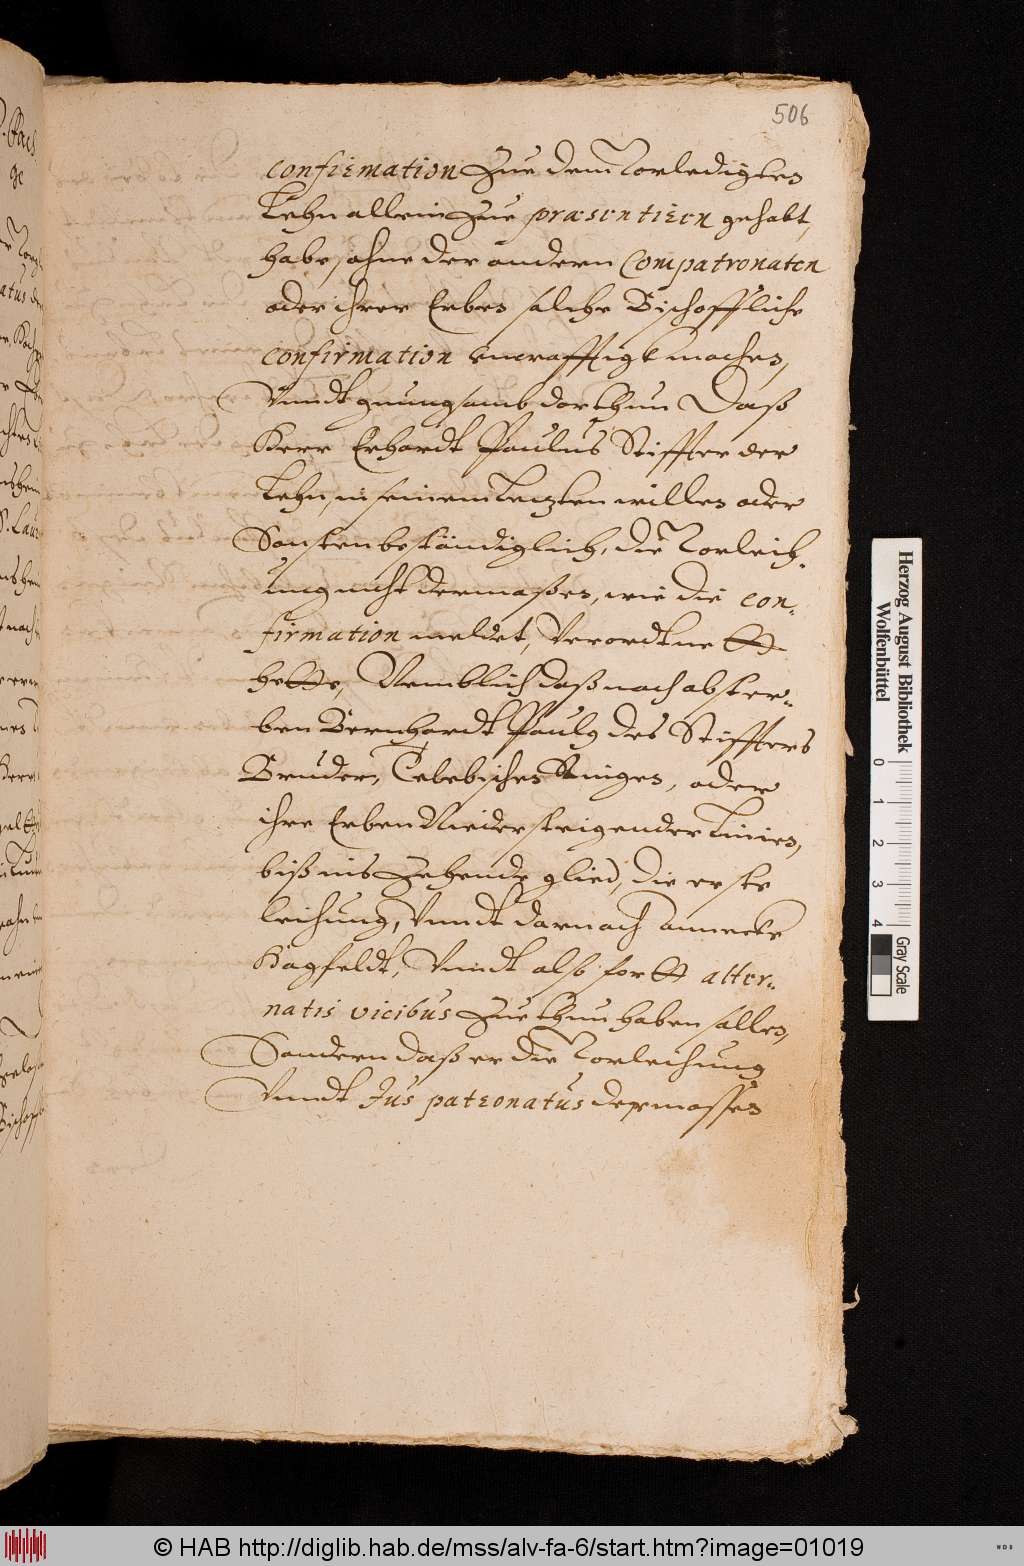 506
confirmation Zue dem Vorledigten
Lehn allein Zue præsentiern gehabt,
habe, ohne der andern Compatronaten
oder ihrer Erben solche Bischoffliche
confirmation machen,
Vnndt gnungsamb darthun Daß
Herr Erhardt Paulus Stiffter der
Lehn, in seinem Letzten willen oder
Sonsten bestendiglich, die Vorleih-
ung nicht dermaßen, wie die con-
firmation meldet, Verordtnett
hette, Nemblich daß nach abster-
ben Bernhardt Pauly des Stiffters
Bruder, oder
ihre Erben Niedersteigender Linien,
biß ins Zehende glied, die erste
leihung, Vnndt darnach annecke
Hagfeldt, Vnndt also fortt alter-
natis vicibus Zue thun haben sollen,
Sondern daß er die Vorleihung
Vnndt Jus patronatus dermassen
Herzog August Bibliothek
Wolfenbüttel
0 1 2 3 4
Gray Scale
© HAB http://diglib.hab.de/mss/alv-fa-6/start.htm?image=01019